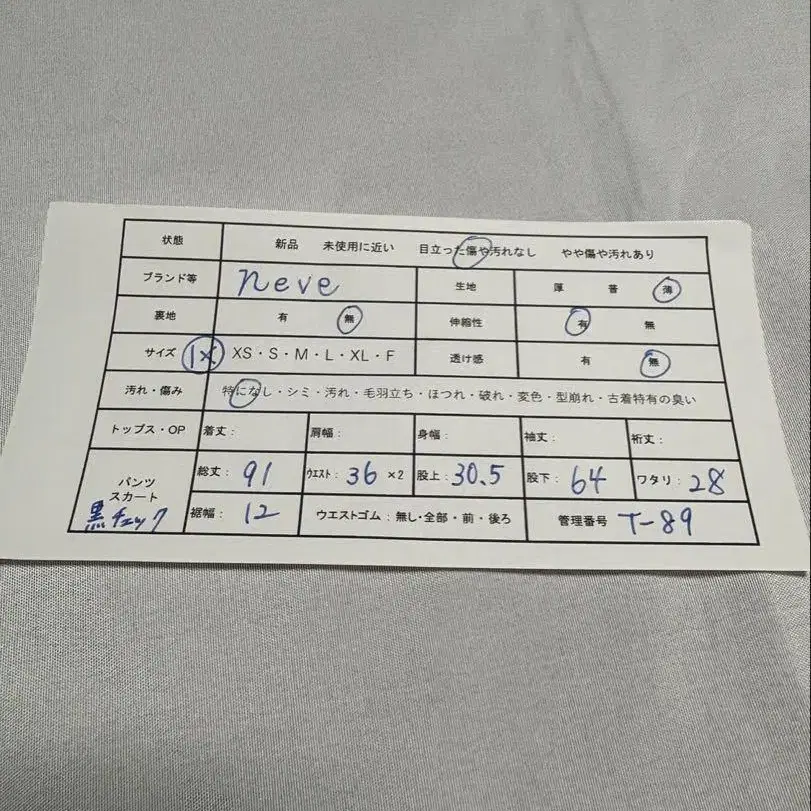 状態 新品 未使用に近い 目立った傷や汚れなし やや傷や汚れあり
ブランド等 neve 生地 厚 普 薄
裏地 有 無 伸縮性 有 無
サイズ 1X XS・S・M・L・XL・F 透け感 有 無
汚れ・傷み 特になし・シミ・汚れ・毛羽立ち・ほつれ・破れ・変色・型崩れ・古着特有の臭い
トップス・OP 着丈: 肩幅: 身幅: 袖丈: 裄丈:
パンツ スカート 総丈: 91 ウエスト: 36 ×2 股上: 30.5 股下: 64 ワタリ: 28
黒チェック 裾幅: 12 ウエストゴム:無し・全部・前・後ろ 管理番号 T-89